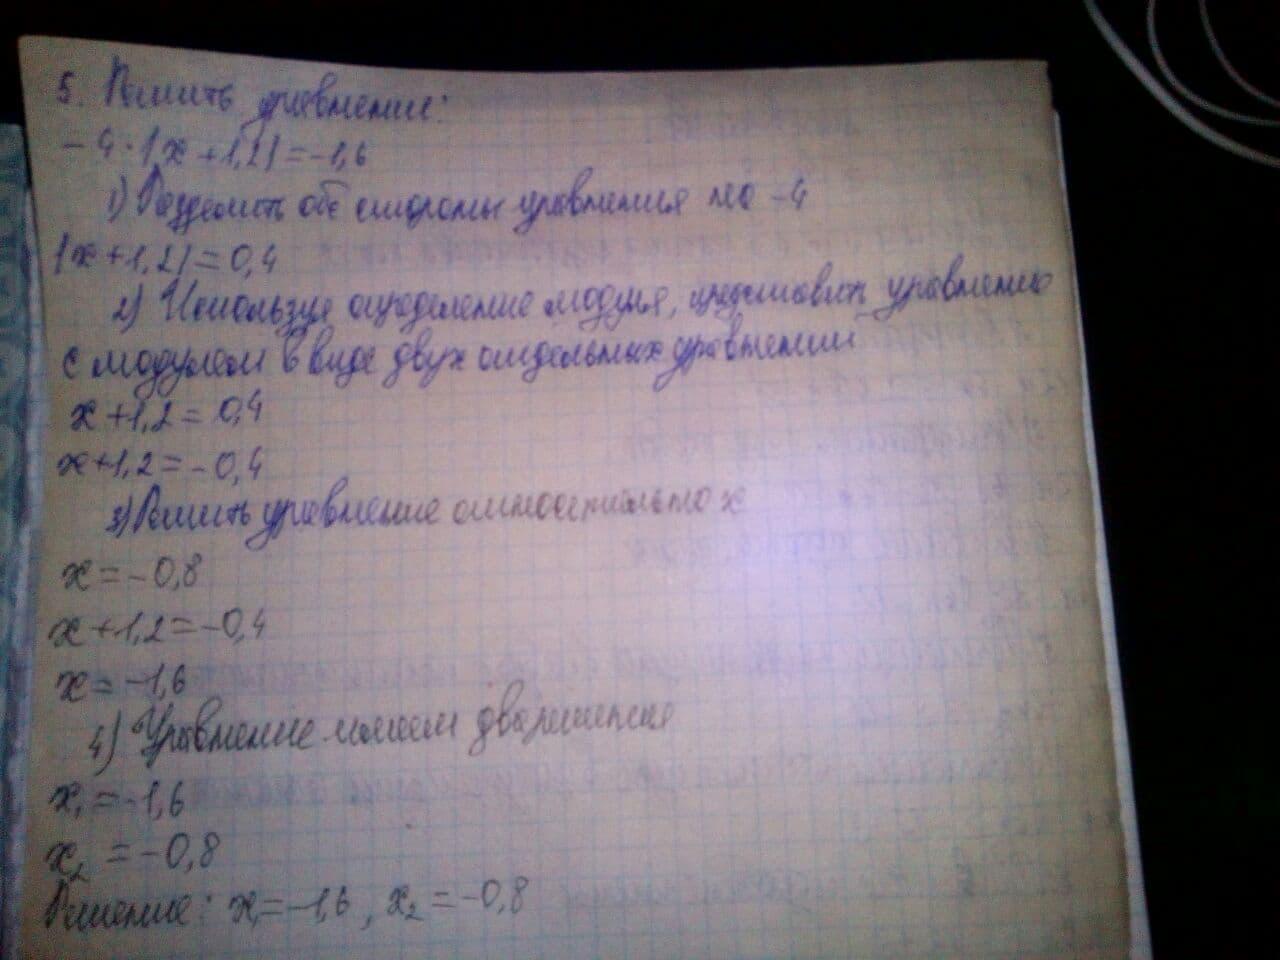 5. Решить уравнение:
-4·|x+1,2|=-1,6
1) Разделить обе стороны уравнения на -4
|x+1,2|=0,4
2) Используя определение модуля, представить уравнение
с модулем в виде двух отдельных уравнений
x+1,2=0,4
x+1,2=-0,4
3) Решить уравнение относительно x
x=-0,8
x+1,2=-0,4
x=-1,6
4) Уравнение имеет два решения
x₁=-1,6
x₂=-0,8
Решение: x₁=-1,6, x₂=-0,8